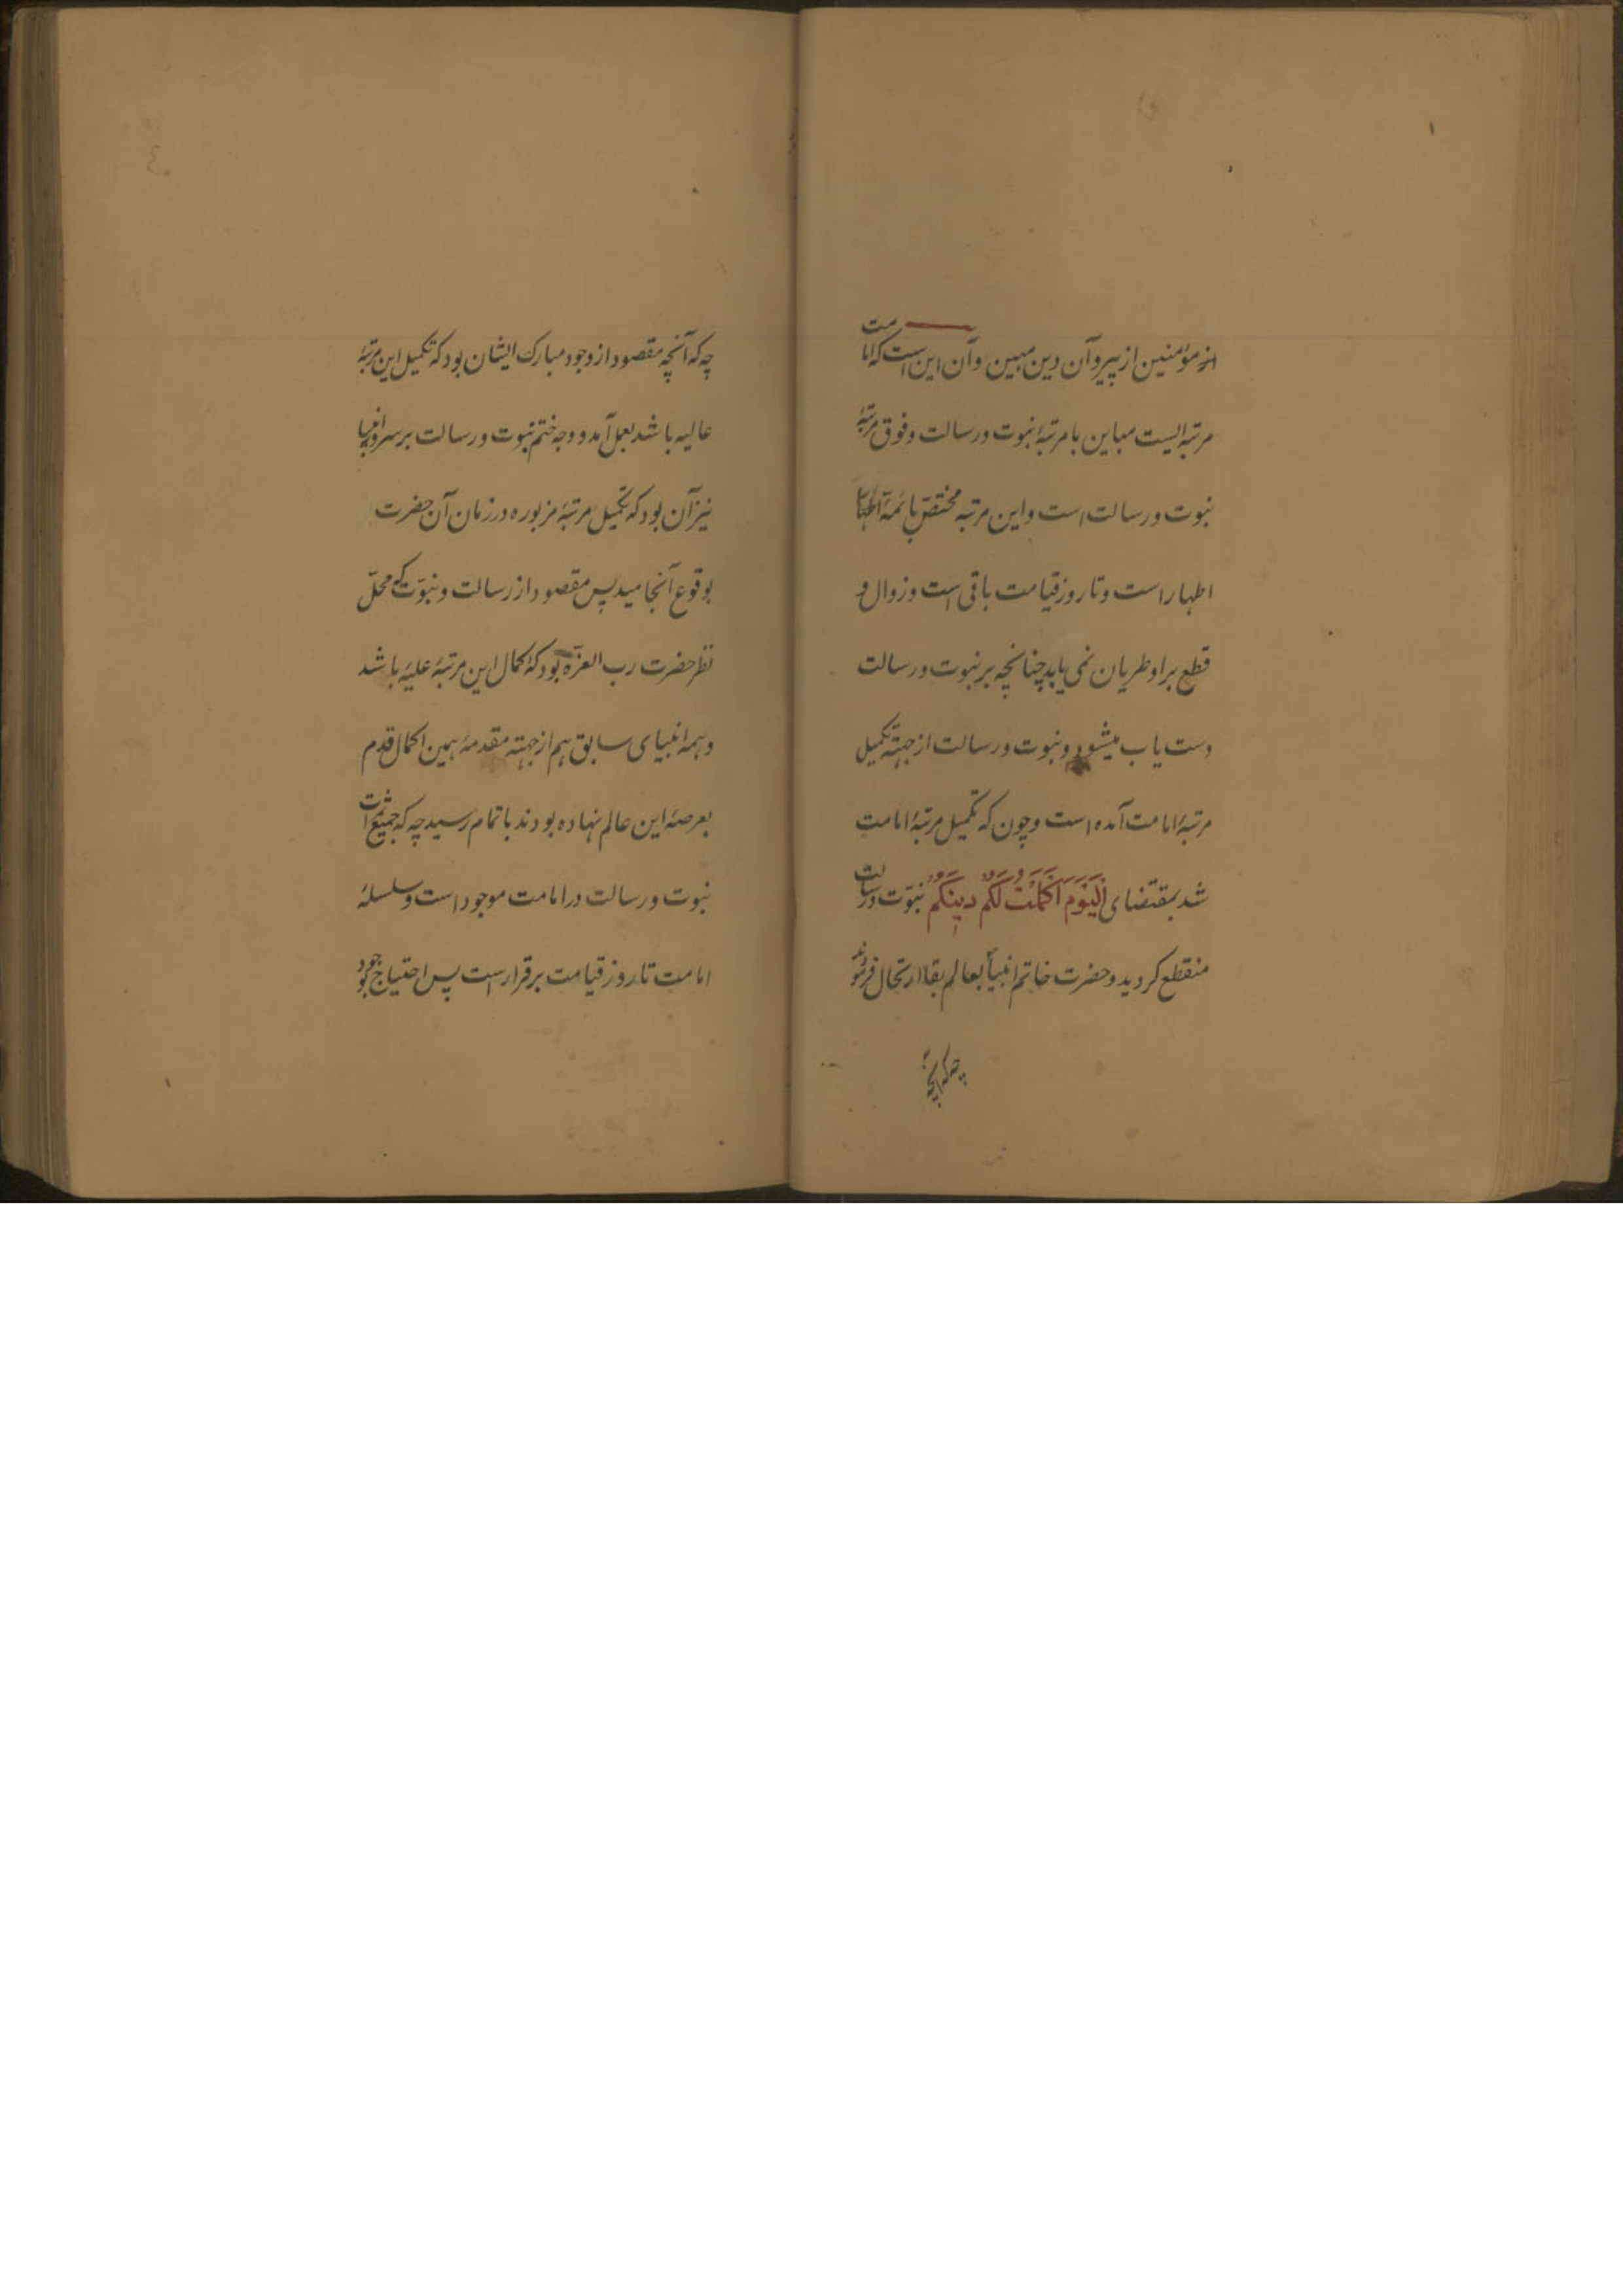 از مؤمنین از پیروان دین مبین و آن این است که امامت
مرتبه ایست مباین با مرتبهٔ نبوت و رسالت و فوق مرتبهٔ
نبوت و رسالت است و این مرتبه مختص بائمهٔ اطهار
اطهار است و تا روز قیامت باقی است و زوال و
قطع بر او طریان نمی یابد چنانچه بر نبوت و رسالت
دست یاب میشود و نبوت و رسالت از جهته تکمیل
مرتبهٔ امامت آمده است و چون که تکمیل مرتبهٔ امامت
شد بمقتضای اَلْیَوْمَ اَکْمَلْتُ لَکُمْ دینَکُمْ نبوّت و رسالت
منقطع کردید و حضرت خاتم انبیأ بعالم بقا ارتحال فرمودند
چه که آنچه
چه که آنچه مقصود از وجود مبارک ایشان بود که تکمیل این مرتبهٔ
عالیه باشد بعمل آمد و وجه ختم نبوت و رسالت بر سرور انبیا
نیز آن بود که تکمیل مرتبهٔ مزبوره در زمان آن حضرت
بوقوع آنجامید پس مقصود از رسالت و نبوّت که محلّ
نظر حضرت رب العزّه بود که اکمال این مرتبهٔ علیّه باشد
و همه انبیای سابق هم از جهته مقدمهٔ همین اکمال قدم
بعرصهٔ این عالم نهاده بودند باتمام رسید چه که جمیع اثرات
نبوت و رسالت در امامت موجود است و سلسلهٔ
امامت تا روز قیامت برقرار است پس احتیاج بوجود